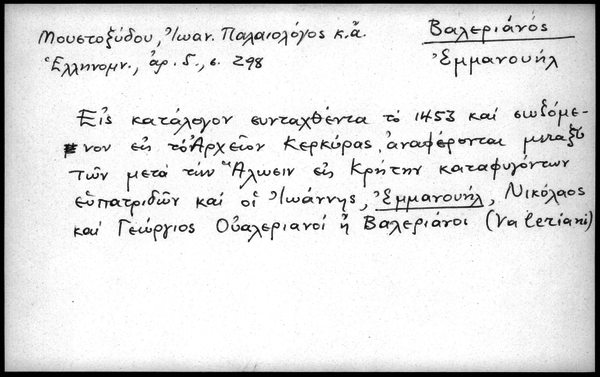 Μουστοξύδου, Ἰωαν. Παλαιολόγος κ.ἄ.
Ἑλληνομν., ἀρ. 5., σ. 298
Βαλεριάνός
Ἐμμανουήλ
Εἰς κατάλογον συνταχθέντα τὸ 1453 καὶ σωζόμε-
νον εἰς τὸ Ἀρχεῖον Κερκύρας, ἀναφέρονται μεταξὺ
τῶν μετὰ τὴν Ἅλωσιν εἰς Κρήτην καταφυγόντων
εὐπατριδῶν καὶ οἱ Ἰωάννης, Ἐμμανουήλ, Νικόλαος
καὶ Γεώργιος Οὐαλεριανοί ἢ Βαλεριάνοι (Valeriani)